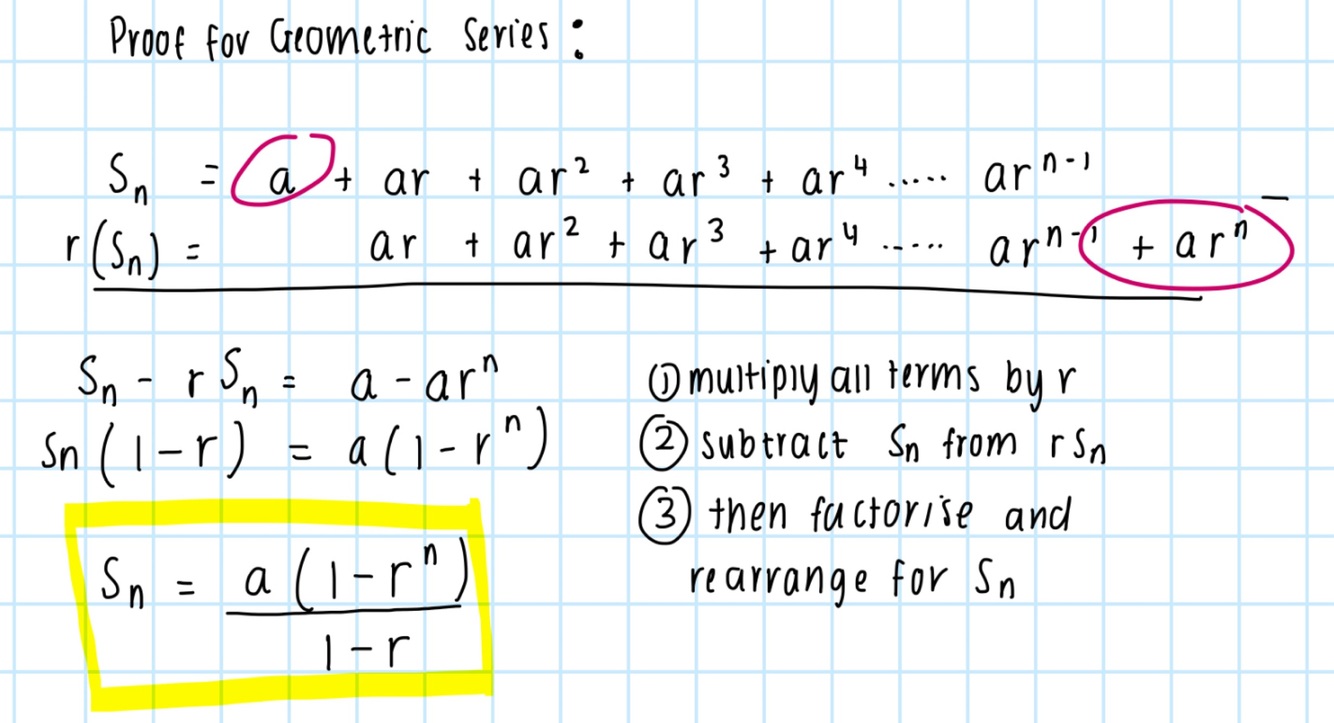 Proof for Geometric Series :
Sₙ = a + ar + ar² + ar³ + ar⁴ ..... arⁿ⁻¹
r(Sₙ) = ar + ar² + ar³ + ar⁴ ..... arⁿ⁻¹ + arⁿ −
Sₙ - rSₙ = a - arⁿ
Sn(1-r) = a(1-rⁿ)
Sₙ = a(1-rⁿ)
1-r
① multiply all terms by r
② subtract Sₙ from rSₙ
③ then factorise and
rearrange for Sₙ